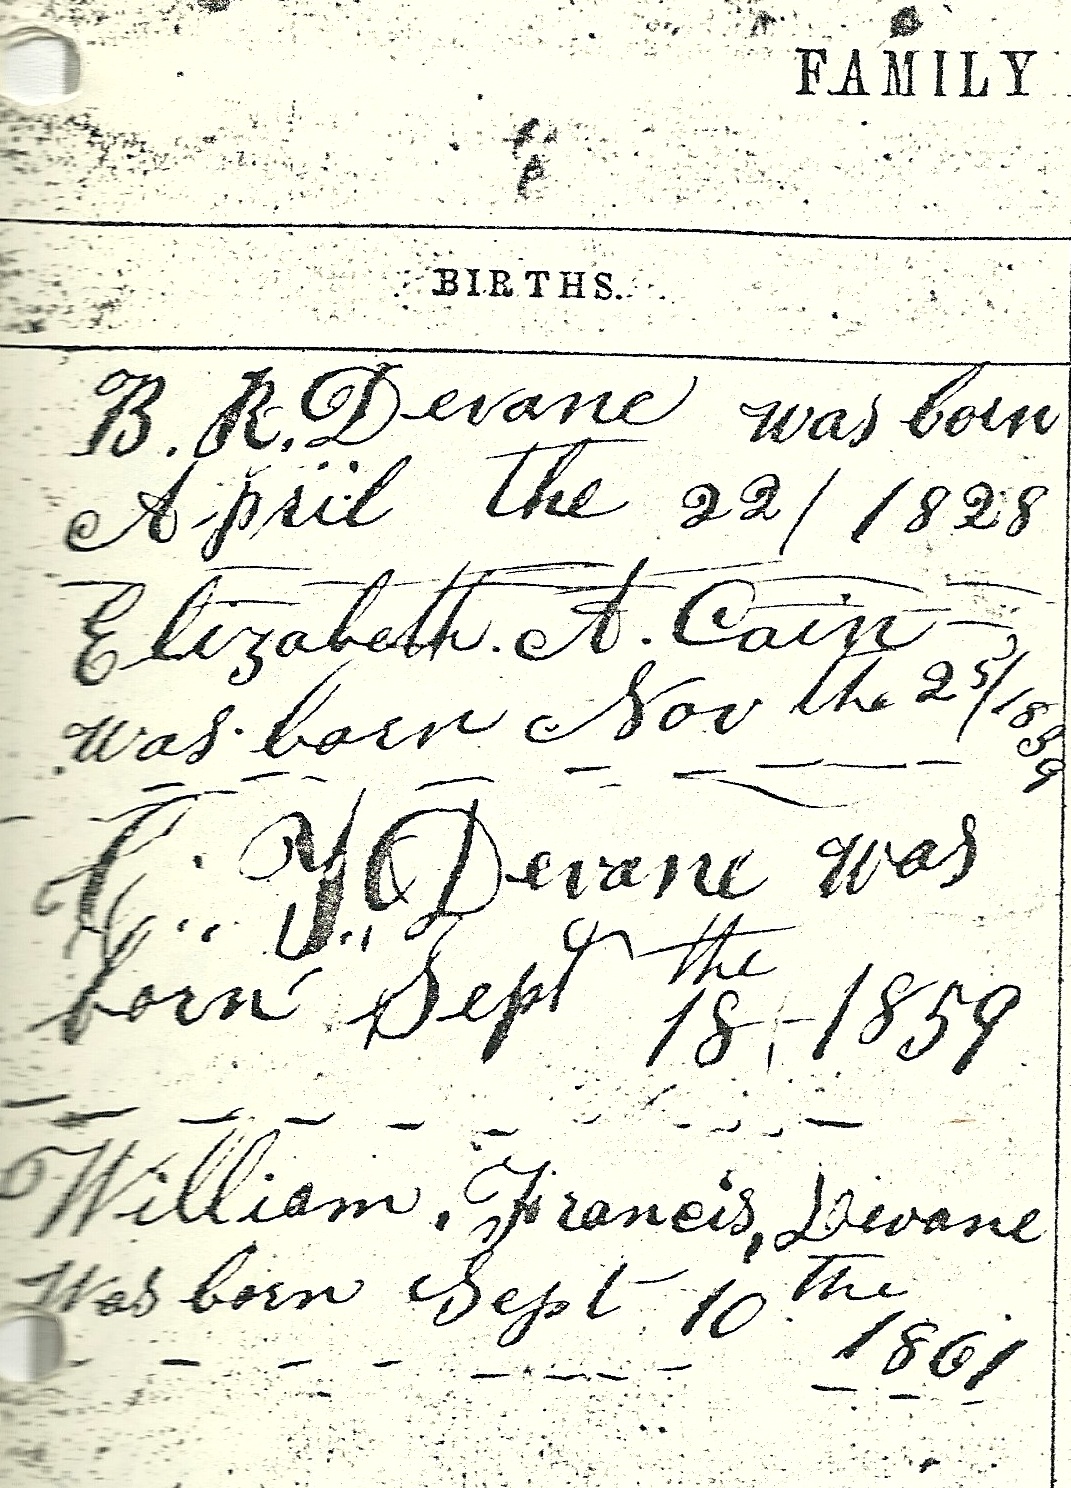 FAMILY
BIRTHS.
B. R. Devane was born
April the 22/ 1828
Elizabeth. A. Cain
was born Nov the 25/1839
Y. Devane was
born Sept the 18, - 1859
William, Francis, Devane
Was born Sept 10 the
1861